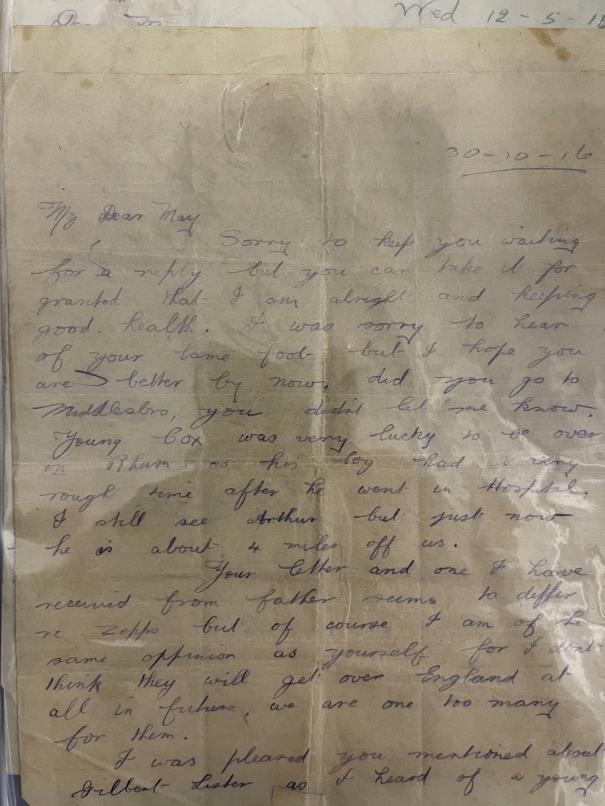 Wed 12-5-1
30-10-16
My Dear May
Sorry to keep you waiting
for a reply but you can take it for
granted that I am alright and keeping
good health. I was sorry to hear
of your lame foot but I hope you
are better by now, did you go to
Middlesbro, you didn't let me know.
Young Cox was very lucky to be over
in as his Coy had a very
rough time after he went in Hospital.
I still see Arthur but just now
he is about 4 miles off us.
Your letter and one I have
received from father seems to differ
re Zepps but of course I am of the
same oppinion as yourself for I dont
think they will get over England at
all in future, we are one too many
for them.
I was pleased you mentioned about
Gilbert Lister as I heard of a young